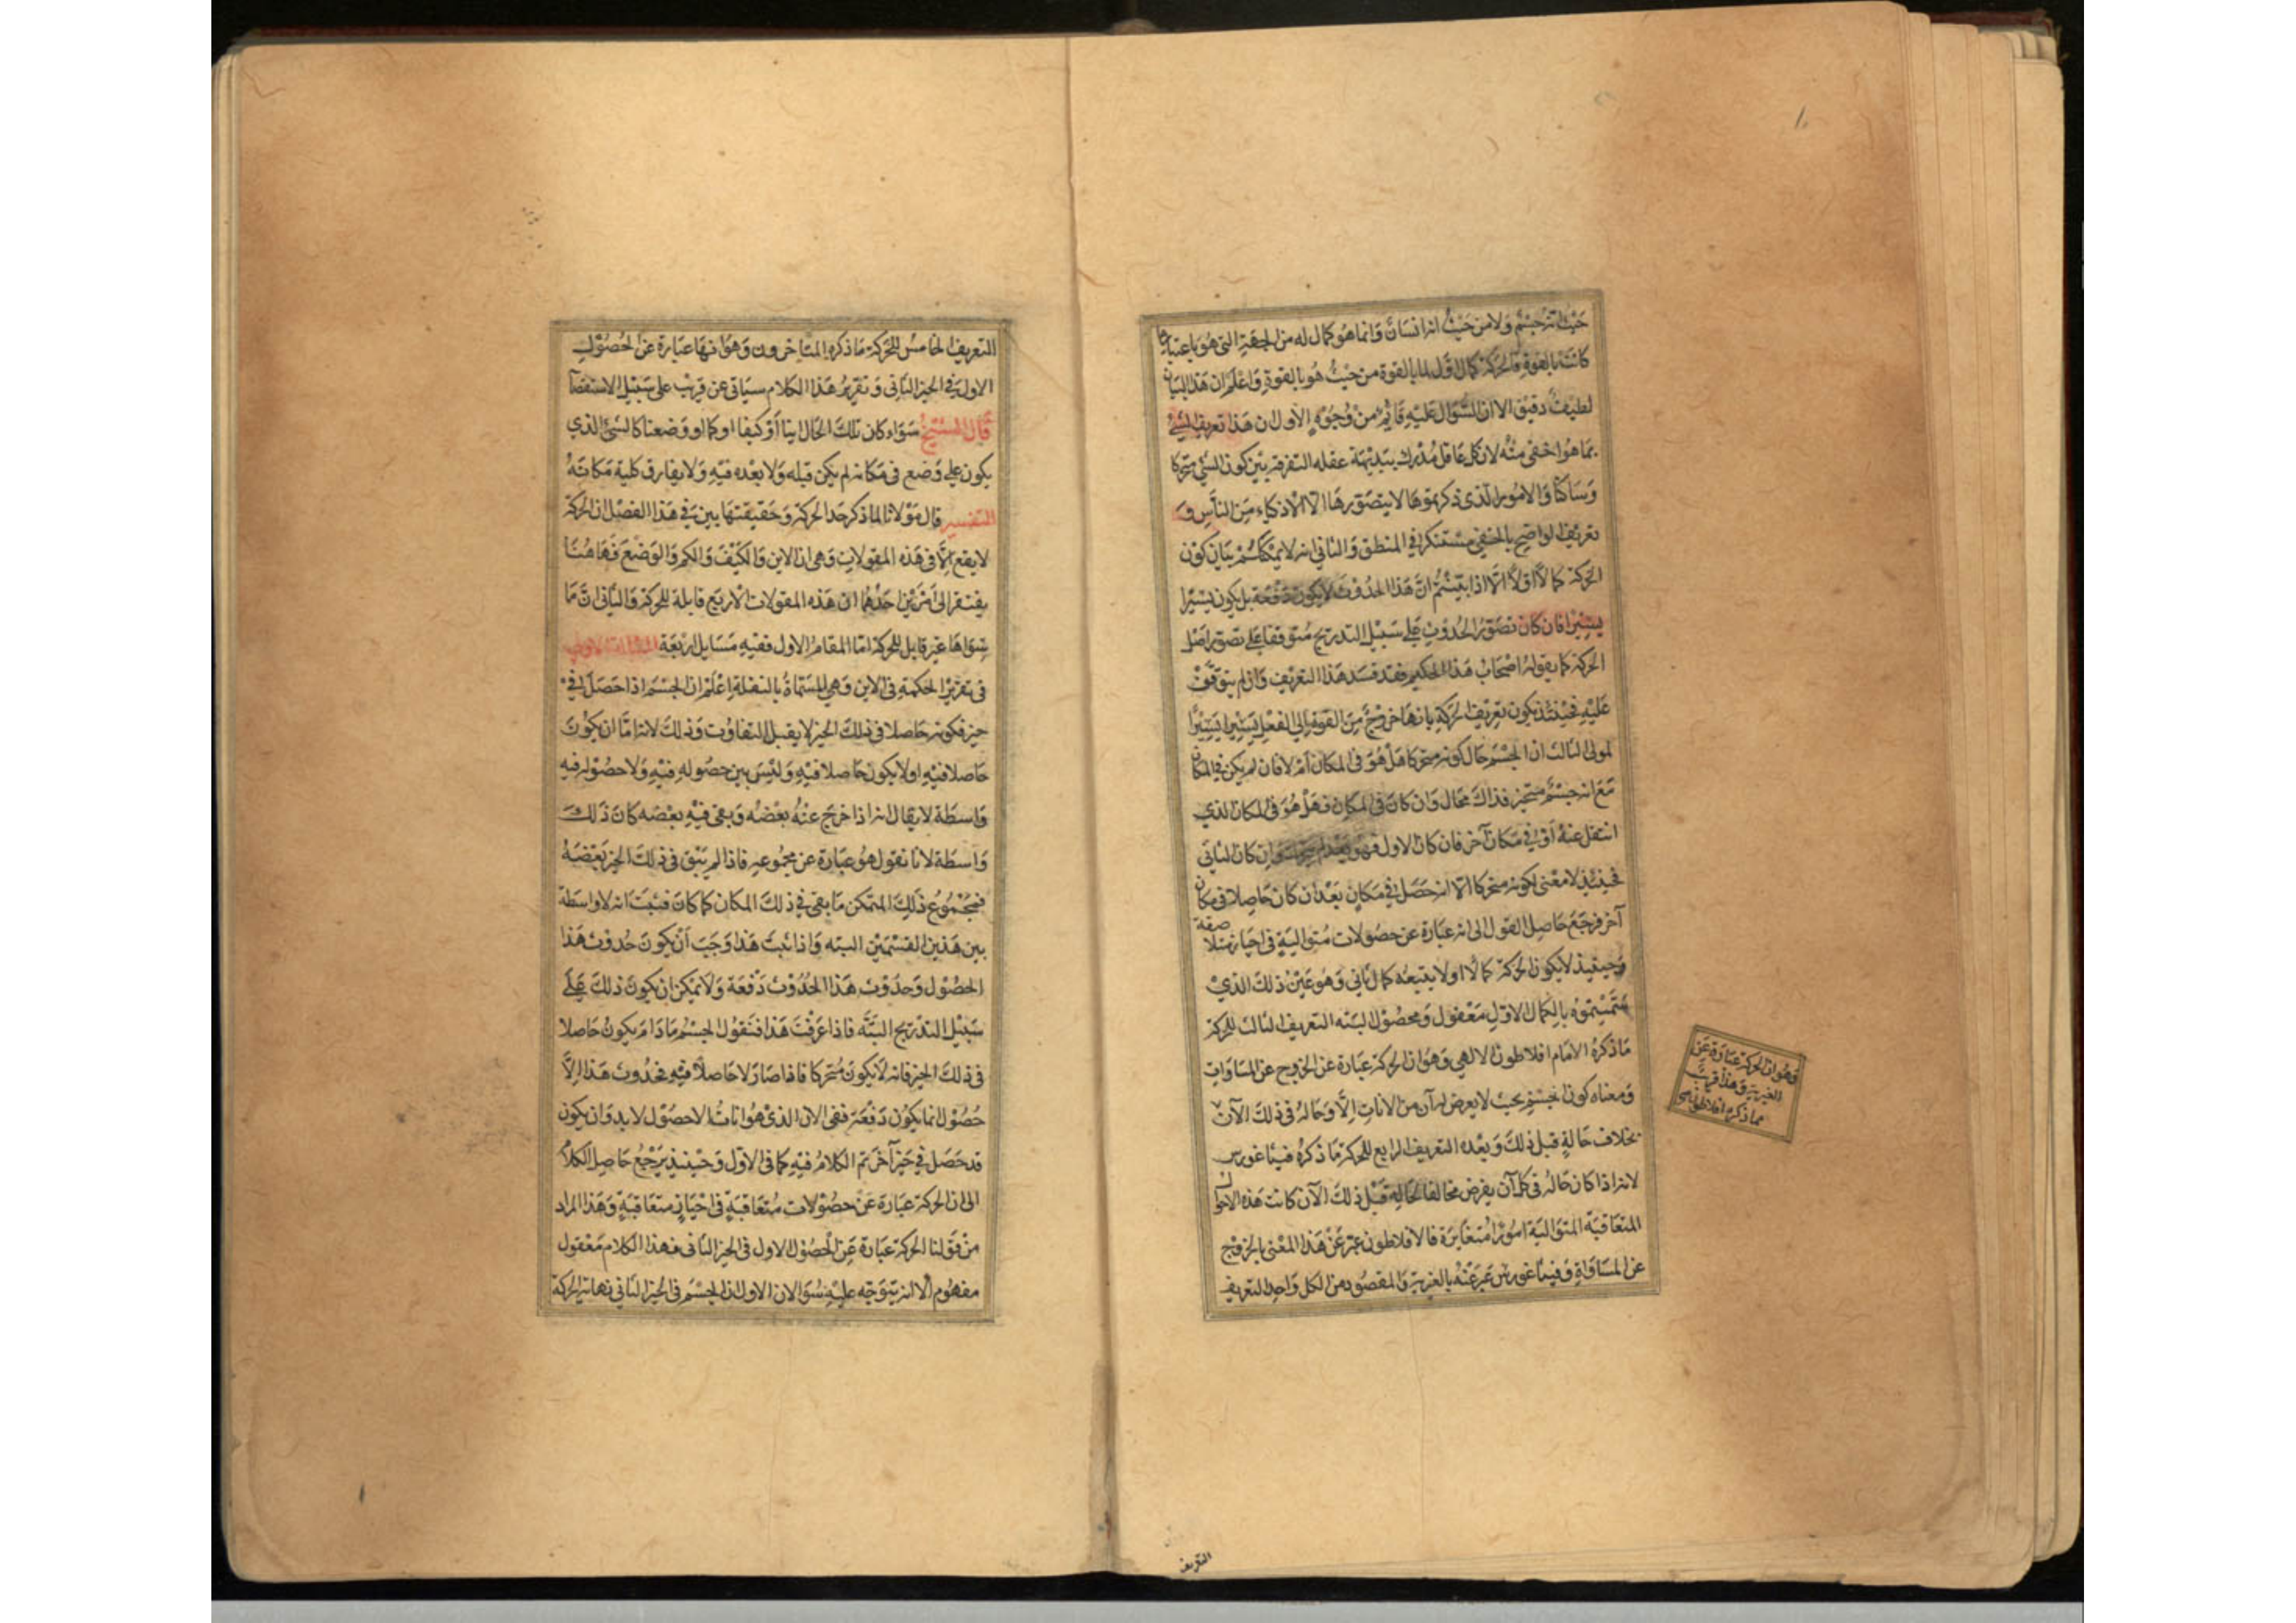 حيث انه جسم ولا من حيث انه انسان وانما هو كمال له من الجهة التي هو باعتبارها
كانت بالقوة فالحركة كمال اول لما بالقوة من حيث هو بالقوة واعلم ان هذا البيان
لطيف دقيق الا ان السؤال عليه قايم من وجوه الاول ان هذا تعريف الشيء
بما هو اخفى منه لان كل عاقل مدرك ببديهة عقله التفرقة بين كون الشي متحركا
وساكنا والامور الذي ذكرتموها لا يتصورها الا الاذكياء من الناس و
تعريف الواضح بالخفي مستنكر في المنطق والثاني انه لا يمكنكم بيان كون
الحركة كمالا اولا الا اذا بينتم ان هذا الحدوث لا يكون دفعة بل يكون يسيرا
يسيرا فان كان تصور الحدوث على سبيل التدريج متوقفا على تصور اصل
الحركة كما يقوله اصحاب هذا الحكيم فقد فسد هذا التعريف وان لم يتوقف
عليه فحينئذ يكون تعريف الحركة بانها خروج من القوة الى الفعل يسيرا يسيرا
لمولى الثالث ان الجسم حال كونه متحركا هل هو في المكان ام لا فان لم يكن في المكان
مع انه جسم متحيز فذاك محال وان كان في المكان فهل هو في المكان الذي
انتقل عنه او في مكان آخر فان كان الاول فهو بعد لم يتحرك وان كان الثاني
فحينئذ لا معنى لكونه متحركا الا انه حصل في مكان بعد ان كان حاصلا في مكان
آخر فرجع حاصل القول الى انه عبارة عن حصولات متوالية في احياز متلاصقة
وحينئذ لا يكون الحركة كمالا اولا يتبعه كمال ثاني وهو عين ذلك الذي
سميتموه بالكمال الاول معقول ومحصول البته التعريف الثالث للحركة
ما ذكره الامام افلاطون الالهي وهو ان الحركة عبارة عن الخروج عن المساوات
ومعناه كون الجسم بحيث لا يعرض له آن من الانات الا وحاله في ذلك الآن
بخلاف حالة قبل ذلك وبعده التعريف الرابع للحركة ما ذكره فيثاغورس
وهو ان الحركة عبارة عن
الغيرية وهذا قريب
مما ذكره افلاطون
لانه اذا كان حاله في كل آن يفرض مخالفا لحاله قبل ذلك الآن كانت هذه الاحوال
المتعاقبة المتوالية امورا متغايرة فالافلاطون عبر عن هذا المعنى بالخروج
عن المساواة وفيثاغورس عبر عنه بالغيرية والمقصود من الكل واحد التعريف
التعريف
التعريف الخامس للحركة ما ذكره المتاخرون وهو انها عبارة عن الحصول
الاول في الحيز الثاني وتقرير هذا الكلام سياتي عن قريب على سبيل الاستقصآ
قال الشيخ سواء كان تلك الحال اينا او كيفا او كما او وضعا كالشئ الذي
يكون على وضع في مكانه لم يكن قبله ولا بعده فيه ولا يفارق كلية مكانه
التفسير قال مولانا لما ذكر حد الحركة وحقيقتها بين في هذا الفصل ان الحركة
لا يقع الا في هذه المقولات وهي ان الاين والكيف والكم والوضع فهاهنا
يفتقر الى امرين احدهما ان هذه المقولات الاربع قابلة للحركة والثاني ان ما
سواها غير قابل للحركة اما المقام الاول ففيه مسايل اربعة المسألة الاولى
في تقرير الحكمة في الاين وهي المسماة بالنقلة اعلم ان الجسم اذا حصل في
حيز فكونه حاصلا في ذلك الحيز لا يقبل التفاوت وذلك لانه اما ان يكون
حاصلا فيه او لا يكون حاصلا فيه وليس بين حصوله فيه ولا حصوله فيه
واسطة لا يقال انه اذا خرج عنه بعضه وبقى فيه بعضه كان ذلك
واسطة لانا نقول هو عبارة عن مجموعه فاذا لم يبق في ذلك الحيز بعضه
فمجموع ذلك المتمكن ما بقى في ذلك المكان كما كان فثبت انه لا واسطة
بين هذين القسمين البته واذا ثبت هذا وجب ان يكون حدوث هذا
الحصول وحدوث هذا الحدوث دفعة ولا يمكن ان يكون ذلك على
سبيل التدريج البته فاذا عرفت هذا فنقول الجسم ما دام يكون حاصلا
في ذلك الحيز فانه لا يكون متحركا فاذا صار لا حاصلا فيه فحدوث هذا الا
حصول انما يكون دفعة ففي الان الذي هو انات الاحصول لابد وان يكون
قد حصل في حيز آخر ثم الكلام فيه كما في الاول وحينئذ يرجع حاصل الكلام
الى ان الحركة عبارة عن حصولات متعاقبة في احياز متعاقبة وهذا المراد
من قولنا الحركة عبارة عن الحصول الاول في الحيز الثاني فهذا الكلام معقول
مفهوم الا انه يتوجه عليه سوالان الاول ان الجسم في الحيز الثاني نهاية الحركة